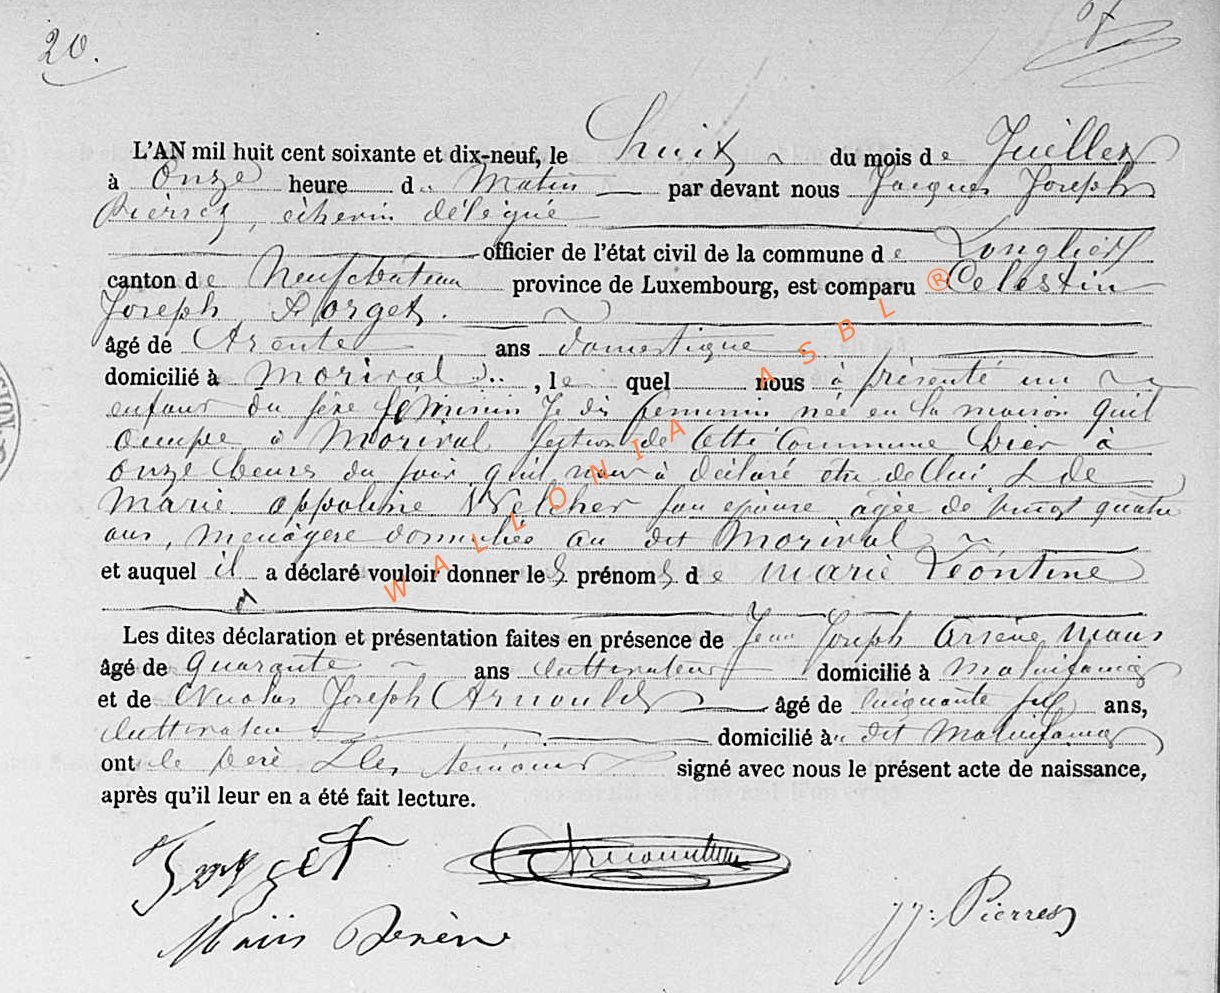 20.
L'AN mil huit cent soixante et dix-neuf, le huit du mois de Juillet
à onze heure du Matin par devant nous Jacques Joseph
Pierret, échevin délégué
officier de l'état civil de la commune de Longlier
canton de Neufchâteau province de Luxembourg, est comparu Célestin
Joseph Forget.
âgé de trente ans domestique
domicilié à Morival, lequel nous à présenté un
enfant du sexe féminin Je dis féminin née en la maison quil
occupe à Morival section de cette Commune hier à
onze heures du soir quil nous à déclaré être de lui & de
Marie appoline Welcher son épouse agée de vingt quatre
ans, menagère domiciliée au dit Morival
et auquel il a déclaré vouloir donner les prénoms de Marie Léontine
Les dites déclaration et présentation faites en présence de Jean Joseph Maus
âgé de quarante ans cultivateur domicilié à Molinfaing
et de Nicolas Joseph Arnould âgé de cinquante ans,
cultivateur domicilié au dit Molinfaing
ont le père & les témoins signé avec nous le présent acte de naissance,
après qu'il leur en a été fait lecture.
Forget Arnould
Maus J J: Pierret
WALLONIA ASBL ®